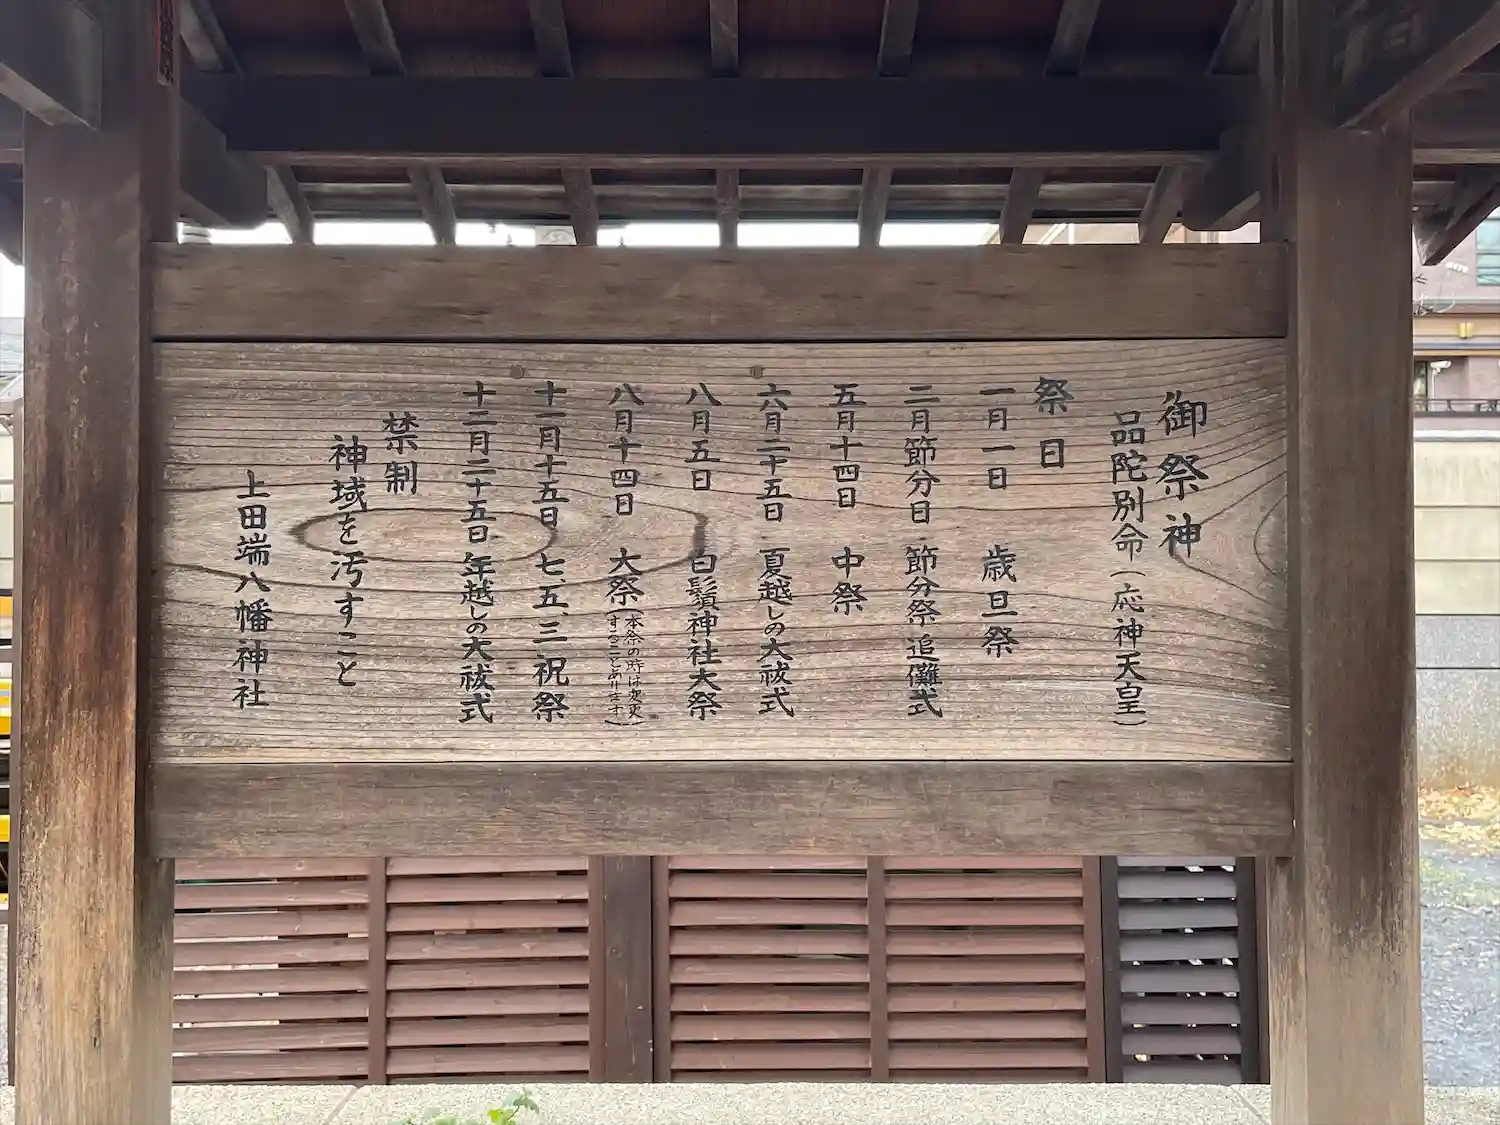 御祭神
品陀別命（応神天皇）
祭日
一月一日　歳旦祭
二月節分日　節分祭 追儺式
五月十四日　中祭
六月二十五日　夏越しの大祓式
八月五日　白鬚神社大祭
八月十四日　大祭（本祭の時は変更
することあります）
十一月十五日　七、五、三祝祭
十二月二十五日　年越しの大祓式
禁制
神域を汚すこと
上田端八幡神社